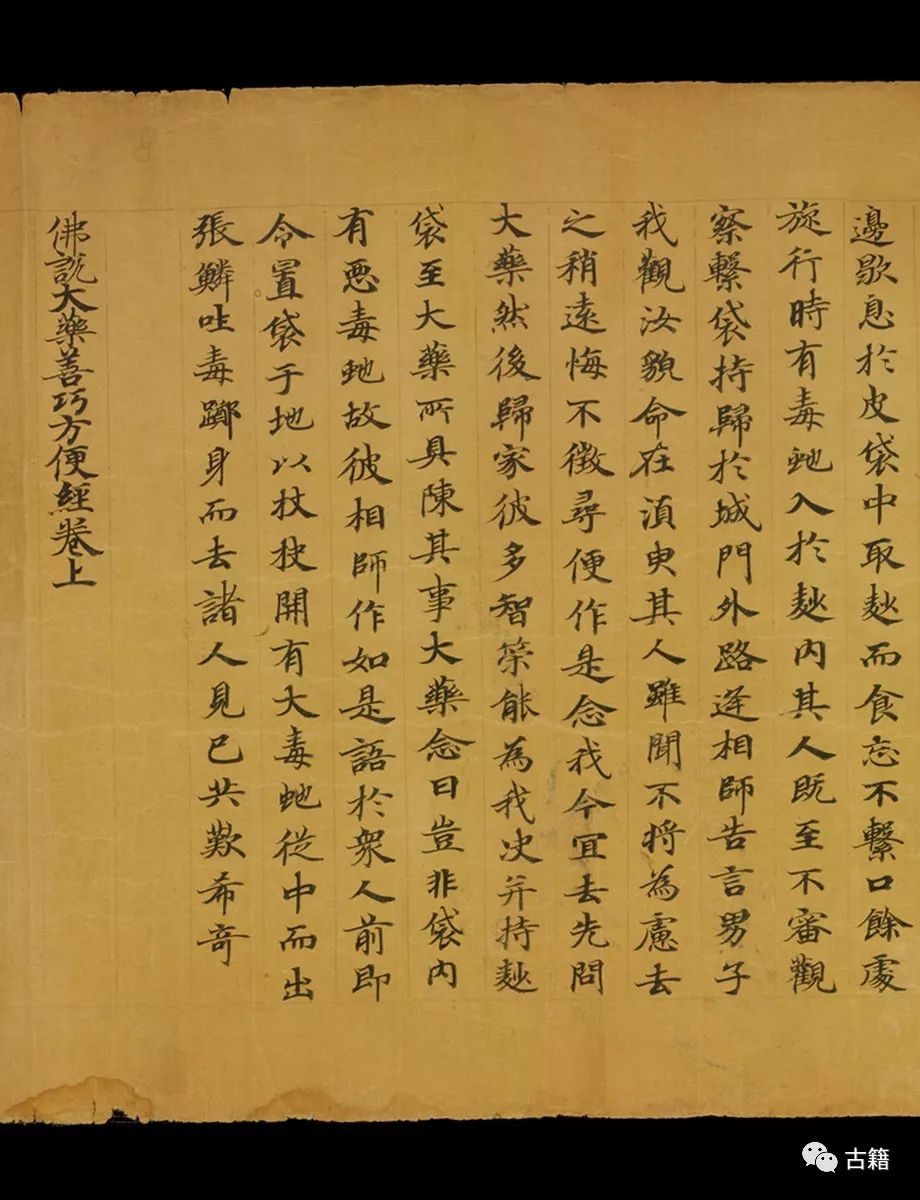 邊歇息於皮袋中取麨而食忘不繫口餘處
旋行時有毒虵入於麨内其人既至不審觀
察繫袋持歸於城門外路逢相師告言男子
我觀汝貌命在湏臾其人雖聞不將為慮去
之稍遠悔不徵尋便作是念我今宜去先問
大藥然後歸家彼多智策能為我决并持麨
袋至大藥所具陳其事大藥念曰豈非袋内
有惡毒虵故彼相師作如是語於衆人前即
令置袋于地以杖抰開有大毒虵從中而出
張鱗吐毒躑身而去諸人見已共歎希奇
佛說大藥善巧方便經卷上
古籍